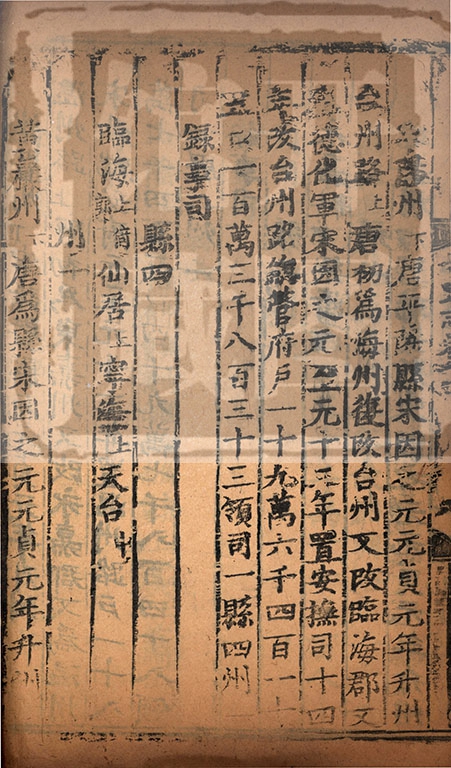 州下唐平陽縣宋因之元元貞元年升州
台州路上唐初爲海州復改台州又改臨海郡又
德化軍宋因之元至元十三年置安撫司十四
年改台州路緫管府戶一十九萬六千四百一十
口一百萬三千八百三十三領司一縣四州
録事司
縣四
臨海上倚郭仙居上寧海上天台中
州
黃巖州下唐爲縣宋因之元元貞元年升州